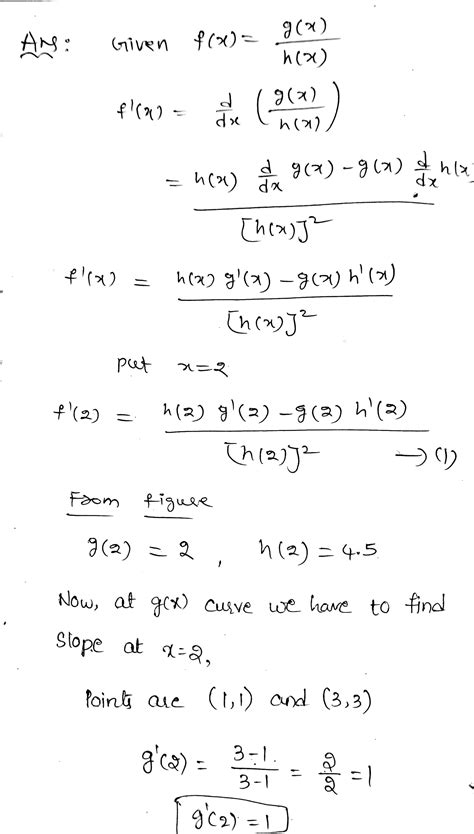 Ans: Given f(x) = g(x)/h(x)
f'(x) = d/dx (g(x)/h(x))
= h(x) d/dx g(x) - g(x) d/dx h(x / [h(x)]²
f'(x) = h(x) g'(x) - g(x) h'(x) / [h(x)]²
put x=2
f'(2) = h(2) g'(2) - g(2) h'(2) / [h(2)]² → (1)
From figure
g(2) = 2 , h(2) = 4.5
Now, at g(x) curve we have to find
slope at x=2,
Points are (1,1) and (3,3)
g'(2) = 3-1/3-1 = 2/2 = 1
g'(2) = 1